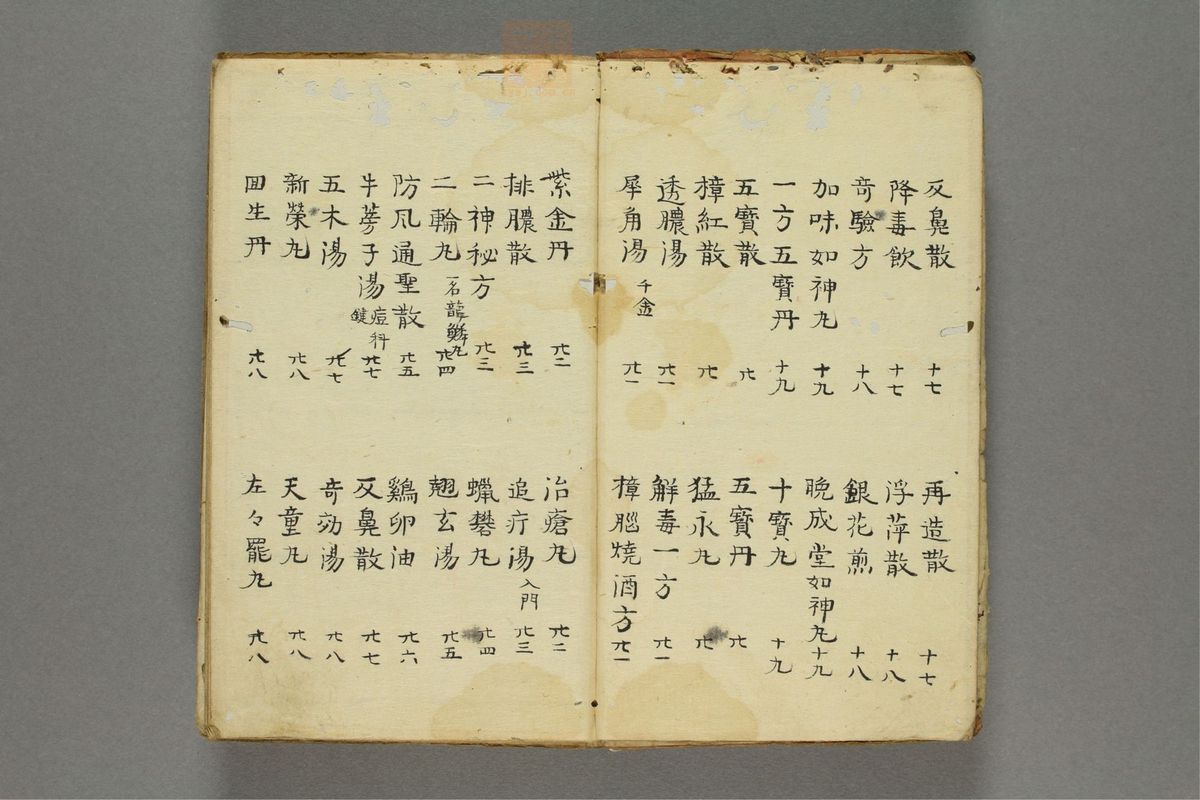 反鼻散 十七
再造散 十七
降毒飲 十七
浮萍散 十八
竒驗方 十八
銀花煎 十八
加味如神丸 十九
晩成堂如神丸 十九
一方五寶丹 十九
十寶丸 十九
五寶散 廿
五寶丹 廿
樟紅散 廿
猛永丸 廿
透膿湯 廿一
解毒一方 廿一
犀角湯 千金 廿一
樟脳燒酒方 廿一
紫金丹 廿二
治瘡丸 廿二
排膿散 廿三
追疔湯 入門 廿三
二神秘方 廿三
蠟礬丸 廿四
二輪丸 一名龍鱗丸 廿四
翹玄湯 廿五
防風通聖散 廿五
鷄卵油 廿六
牛蒡子湯 痘科鍵 廿七
反鼻散 廿七
五木湯 廿七
竒効湯 廿八
新榮丸 廿八
天童丸 廿八
回生丹 廿八
左々罷丸 廿八